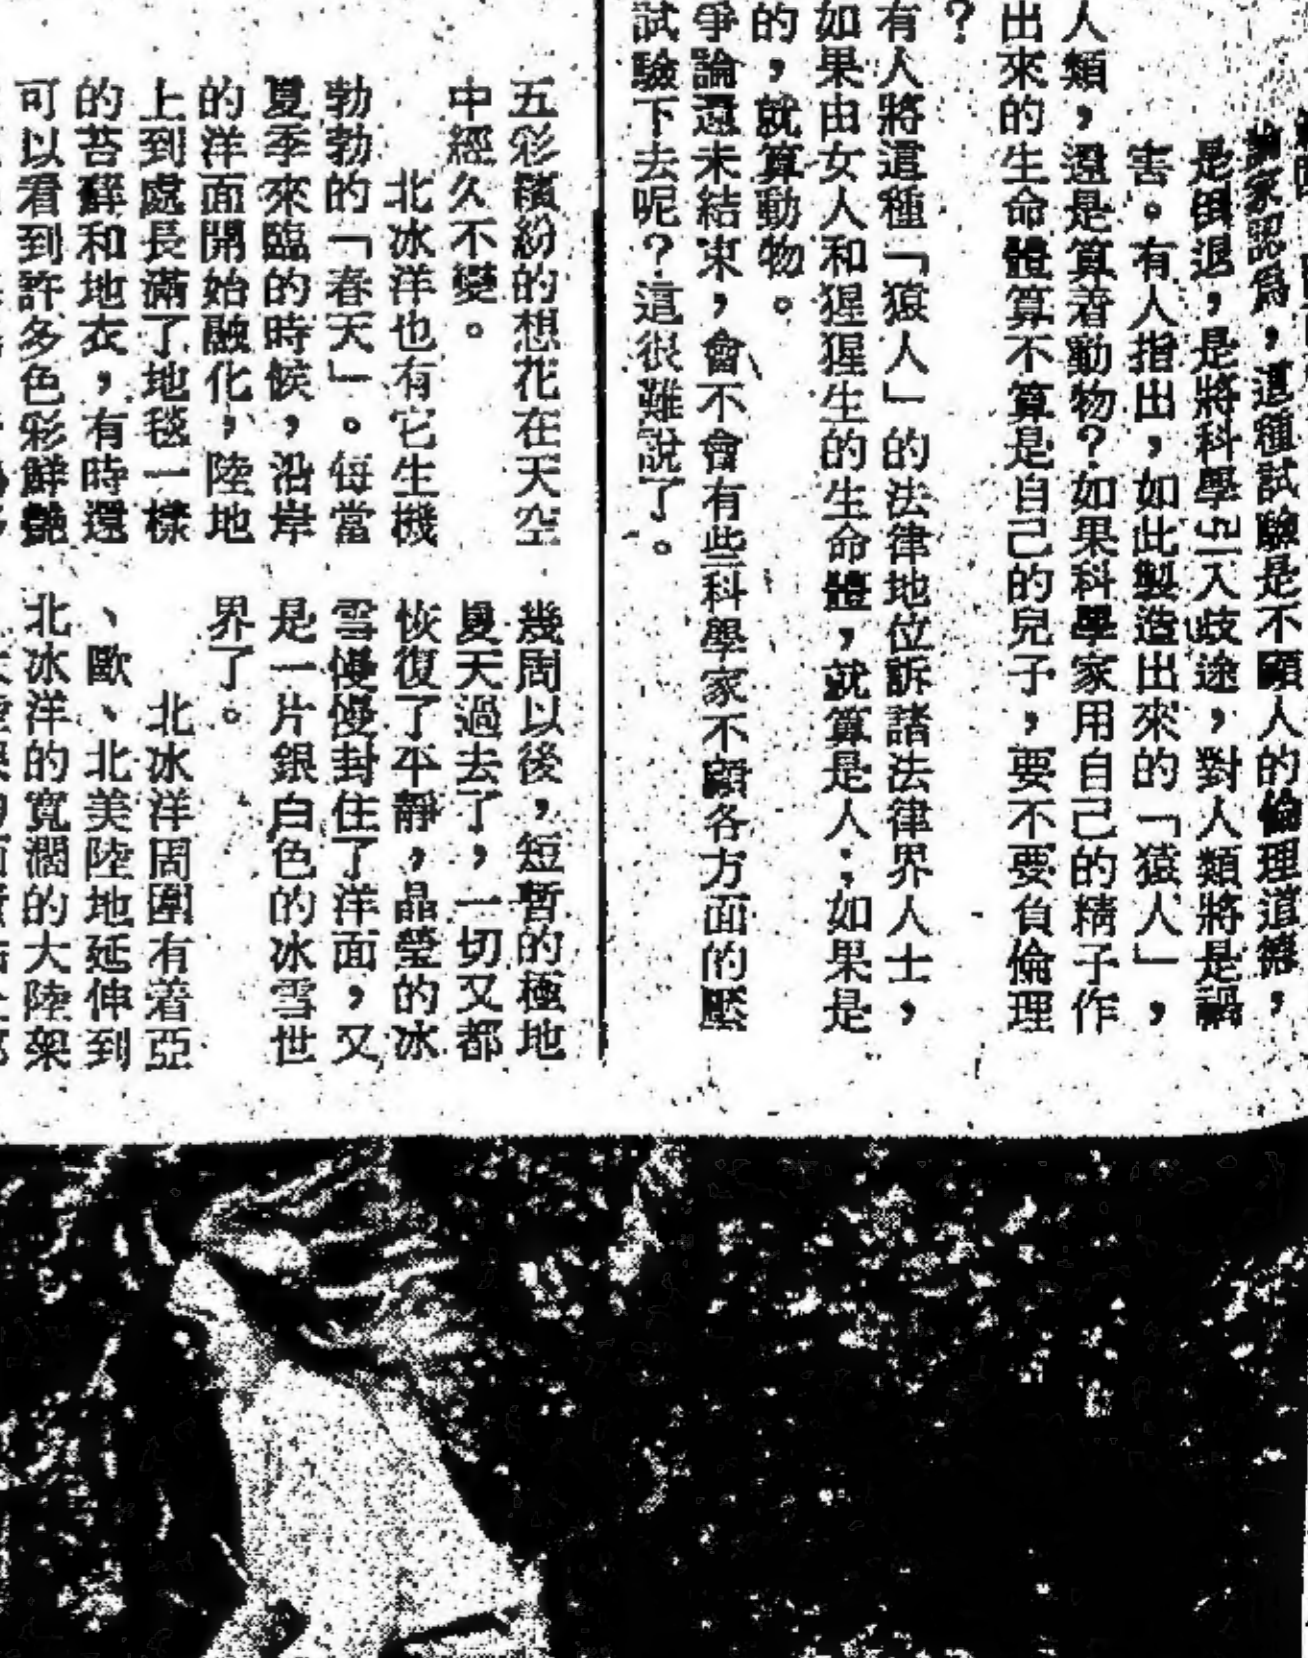 論家認爲，這種試驗是不顧人的倫理道德，
是倒退，是將科學引入歧途，對人類將是禍
害。有人指出，如此製造出來的「猿人」，
人類，還是算着動物？如果科學家用自己的精子作
出來的生命體算不算是自己的兒子，要不要負倫理
？
有人將這種「猿人」的法律地位訴諸法律界人士，
如果由女人和猩猩生的生命體，就算是人；如果是
的，就算動物。
爭論還未結束，會不會有些科學家不顧各方面的壓
試驗下去呢？這很難說了。
五彩繽紛的想花在天空
中經久不變。
北冰洋也有它生機
勃勃的「春天」。每當
夏季來臨的時候，沿岸
的洋面開始融化，陸地
上到處長滿了地毯一樣
的苔蘚和地衣，有時還
可以看到許多色彩鮮艷
幾周以後，短暫的極地
夏天過去了，一切又都
恢復了平靜，晶瑩的冰
雪慢慢封住了洋面，又
是一片銀白色的冰雪世
界了。
北冰洋周圍有着亞
、歐、北美陸地延伸到
北冰洋的寬濶的大陸架